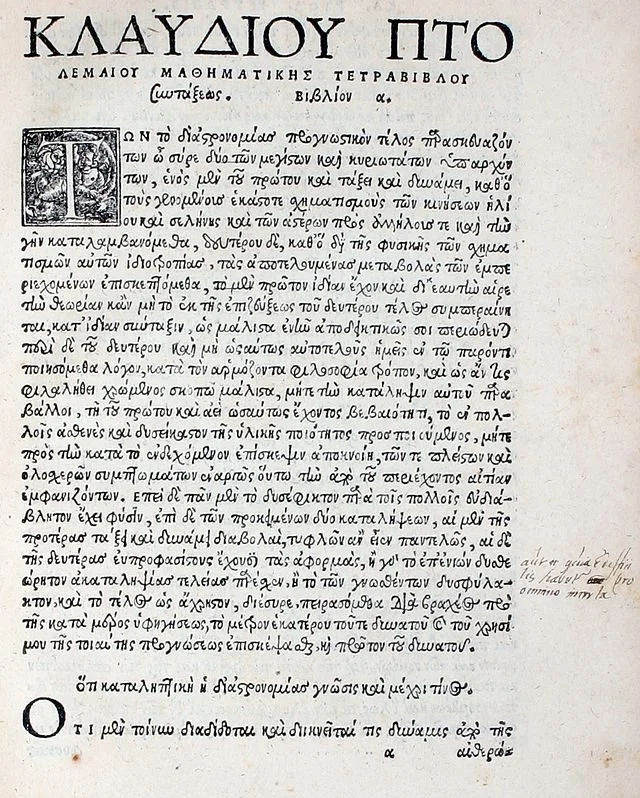 ΚΛΑΥΔΙΟΥ ΠΤΟ
ΛΕΜΑΙΟΥ ΜΑΘΗΜΑΤΙΚΗΣ ΤΕΤΡΑΒΙΒΛΟΥ
Συντάξεως. Βιβλίον α.
ΤΩΝ τὸ δι' ἀστρονομίας προγνωστικὸν τέλος παρασκευαζόν
των ὦ σύρε δύο τῶν μεγίστων καὶ κυριωτάτων ὑπαρχόν
των, ἑνὸς μὲν τοῦ πρώτου καὶ τάξει καὶ δυνάμει, καθ' ὃ
τοὺς γινομένους ἑκάστοτε σχηματισμοὺς τῶν κινήσεων ἡλί
ου καὶ σελήνης καὶ τῶν ἀστέρων πρὸς ἀλλήλοις τε καὶ τὴν
γῆν καταλαμβανόμεθα, δευτέρου δὲ, καθ' ὃ διὰ τῆς φυσικῆς τῶν σχημα
τισμῶν αὐτῶν ἰδιοτροπίας, τὰς ἀποτελουμένας μεταβολὰς τῶν ἐμπε
ριεχομένων ἐπισκεπτόμεθα, τὸ μὲν πρῶτον ἰδίαν ἔχον καὶ δι' ἑαυτὴν αἱρε
τὴν θεωρίαν κἂν μὴ τὸ ἐκ τῆς ἐπιζεύξεως τοῦ δευτέρου τέλος συμπεραίνη
ται, κατ' ἰδίαν σύνταξιν, ὡς μάλιστα ἐνῆν ἀποδεικτικῶς σοι περιώδευται
περὶ δὲ τοῦ δευτέρου καὶ μὴ ὡσαύτως αὐτοτελοῦς ἡμεῖς ἐν τῷ παρόντι
ποιησόμεθα λόγον, κατὰ τὸν ἁρμόζοντα φιλοσοφίᾳ τρόπον, καὶ ὡς ἄν τις
φιλαλήθει χρώμενος σκοπῷ μάλιστα, μήτε τὴν κατάληψιν αὐτοῦ παρα
βάλλοι, τῇ τοῦ πρώτου καὶ ἀεὶ ὡσαύτως ἔχοντος βεβαιότητι, τὸ ἐν πολ-
λοῖς ἀσθενὲς καὶ δυσείκαστον τῆς ὑλικῆς ποιότητος προσποιούμενος, μήτε
πρὸς τὴν κατὰ τὸ ἐνδεχόμενον ἐπίσκεψιν ἀποκνοίη, τῶν τε πλείστων καὶ
ὁλοσχερῶν συμπτωμάτων ἐναργῶς οὕτω τὴν ἀπὸ τοῦ περιέχοντος αἰτίαν
ἐμφανιζόντων. ἐπεὶ δὲ πᾶν μὲν τὸ δυσέφικτον παρὰ τοῖς πολλοῖς εὐδιά-
βλητον ἔχει φύσιν, ἐπὶ δὲ τῶν προκειμένων δύο καταλήψεων, αἱ μὲν τῆς
προτέρας τάξει καὶ δυνάμει διαβολαὶ, τυφλῶν ἂν εἶεν παντελῶς, αἱ δὲ
τῆς δευτέρας εὐπροφασίστους ἔχουσι τὰς ἀφορμὰς, ἢ γὰρ τὸ ἐπ' ἐνίων δυσθε
ώρητον ἀκαταληψίας τελείας παρέχον, ἢ τὸ τῶν γνωσθέντων δυσφύλα-
κτον, καὶ τὸ τέλος ὡς ἄχρηστον, διέσυρε, πειρασόμεθα διὰ βραχέων πρὸ
τῆς κατὰ μέρος ὑφηγήσεως, τὸ μέτρον ἑκατέρου τοῦ τε δυνατοῦ καὶ τοῦ χρησί
μου τῆς τοιαύτης προγνώσεως ἐπισκέψασθαι, καὶ πρῶτον τοῦ δυνατοῦ.
ὅτι καταληπτικὴ ἡ δι' ἀστρονομίας γνῶσις καὶ μέχρι τίνος.
ΟΤΙ μὲν τοίνυν διαδίδοται καὶ διικνεῖταί τις δύναμις ἀπὸ τῆς
α αἰθερώ-